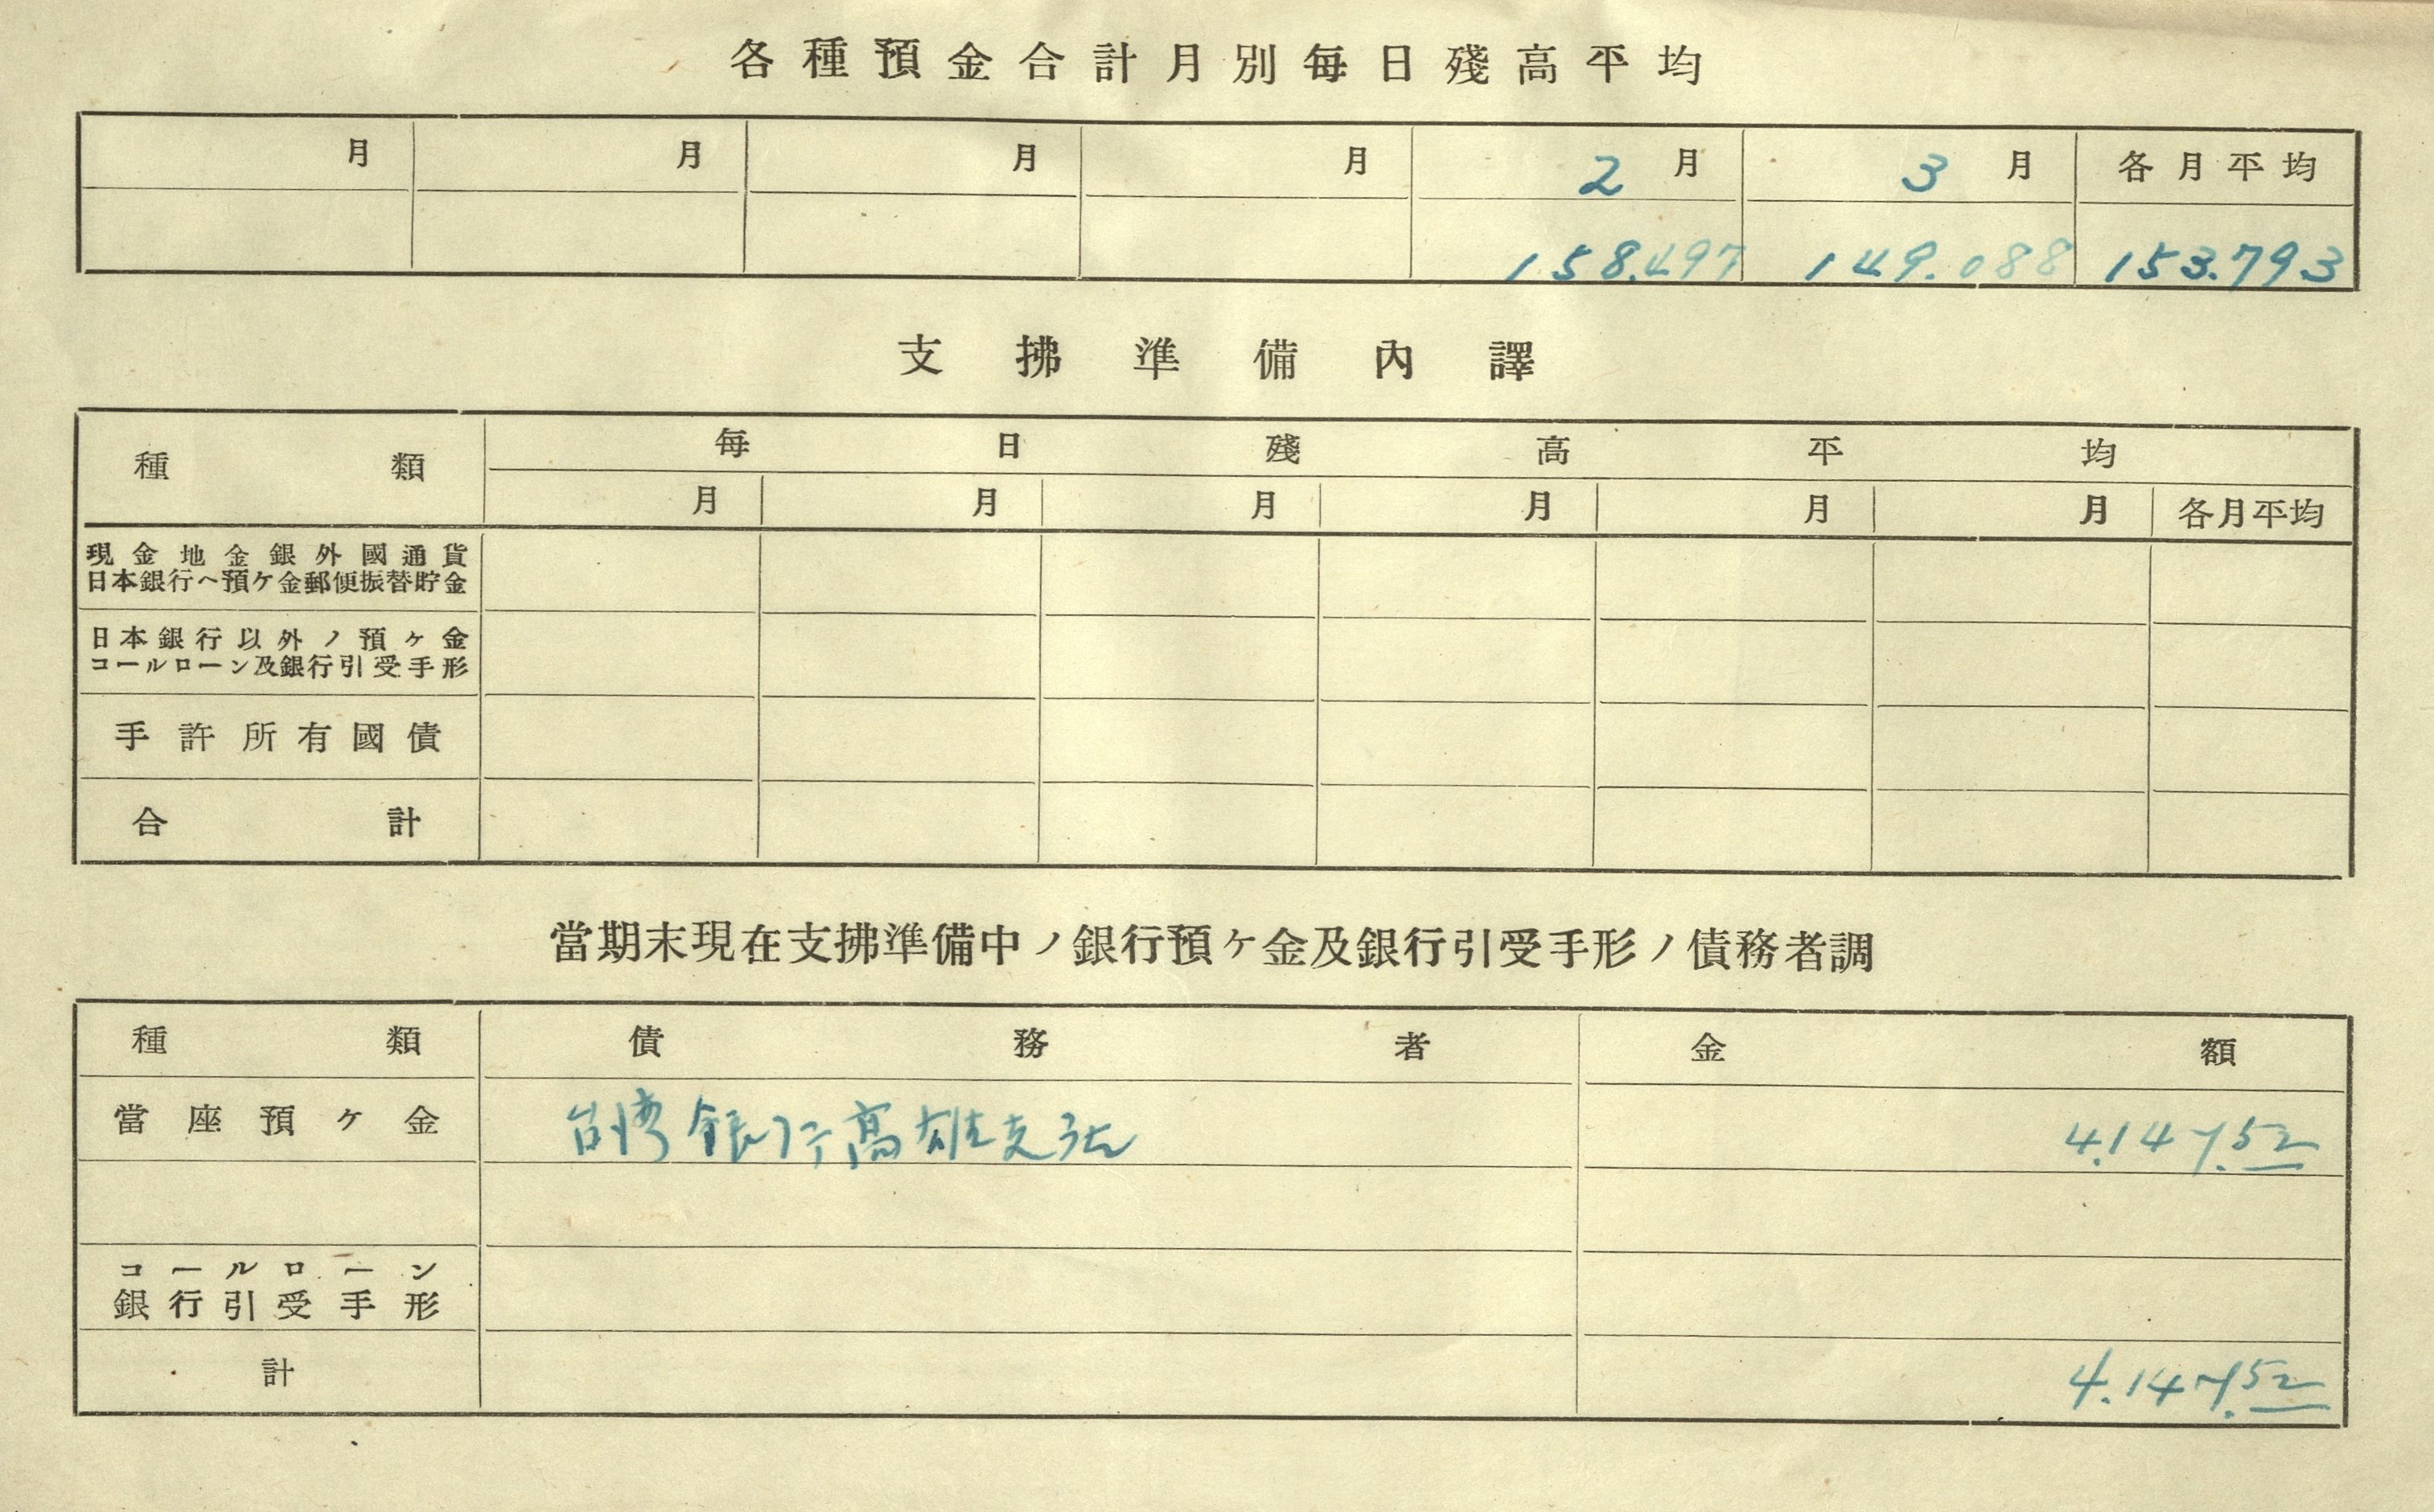 各種預金合計月別每日殘高平均
月 月 月 月 2月 3月 各月平均
158.497 149.088 153.793
支拂準備內譯
種類 每日殘高平均
月 月 月 月 月 月 各月平均
現金地金銀外國通貨
日本銀行ヘ預ケ金郵便振替貯金
日本銀行以外ノ預ヶ金
コールローン及銀行引受手形
手許所有國債
合計
當期末現在支拂準備中ノ銀行預ヶ金及銀行引受手形ノ債務者調
種類 債務者 金額
當座預ヶ金 台湾銀行高雄支店 4.147.52
コールローン
銀行引受手形
計 4.147.52